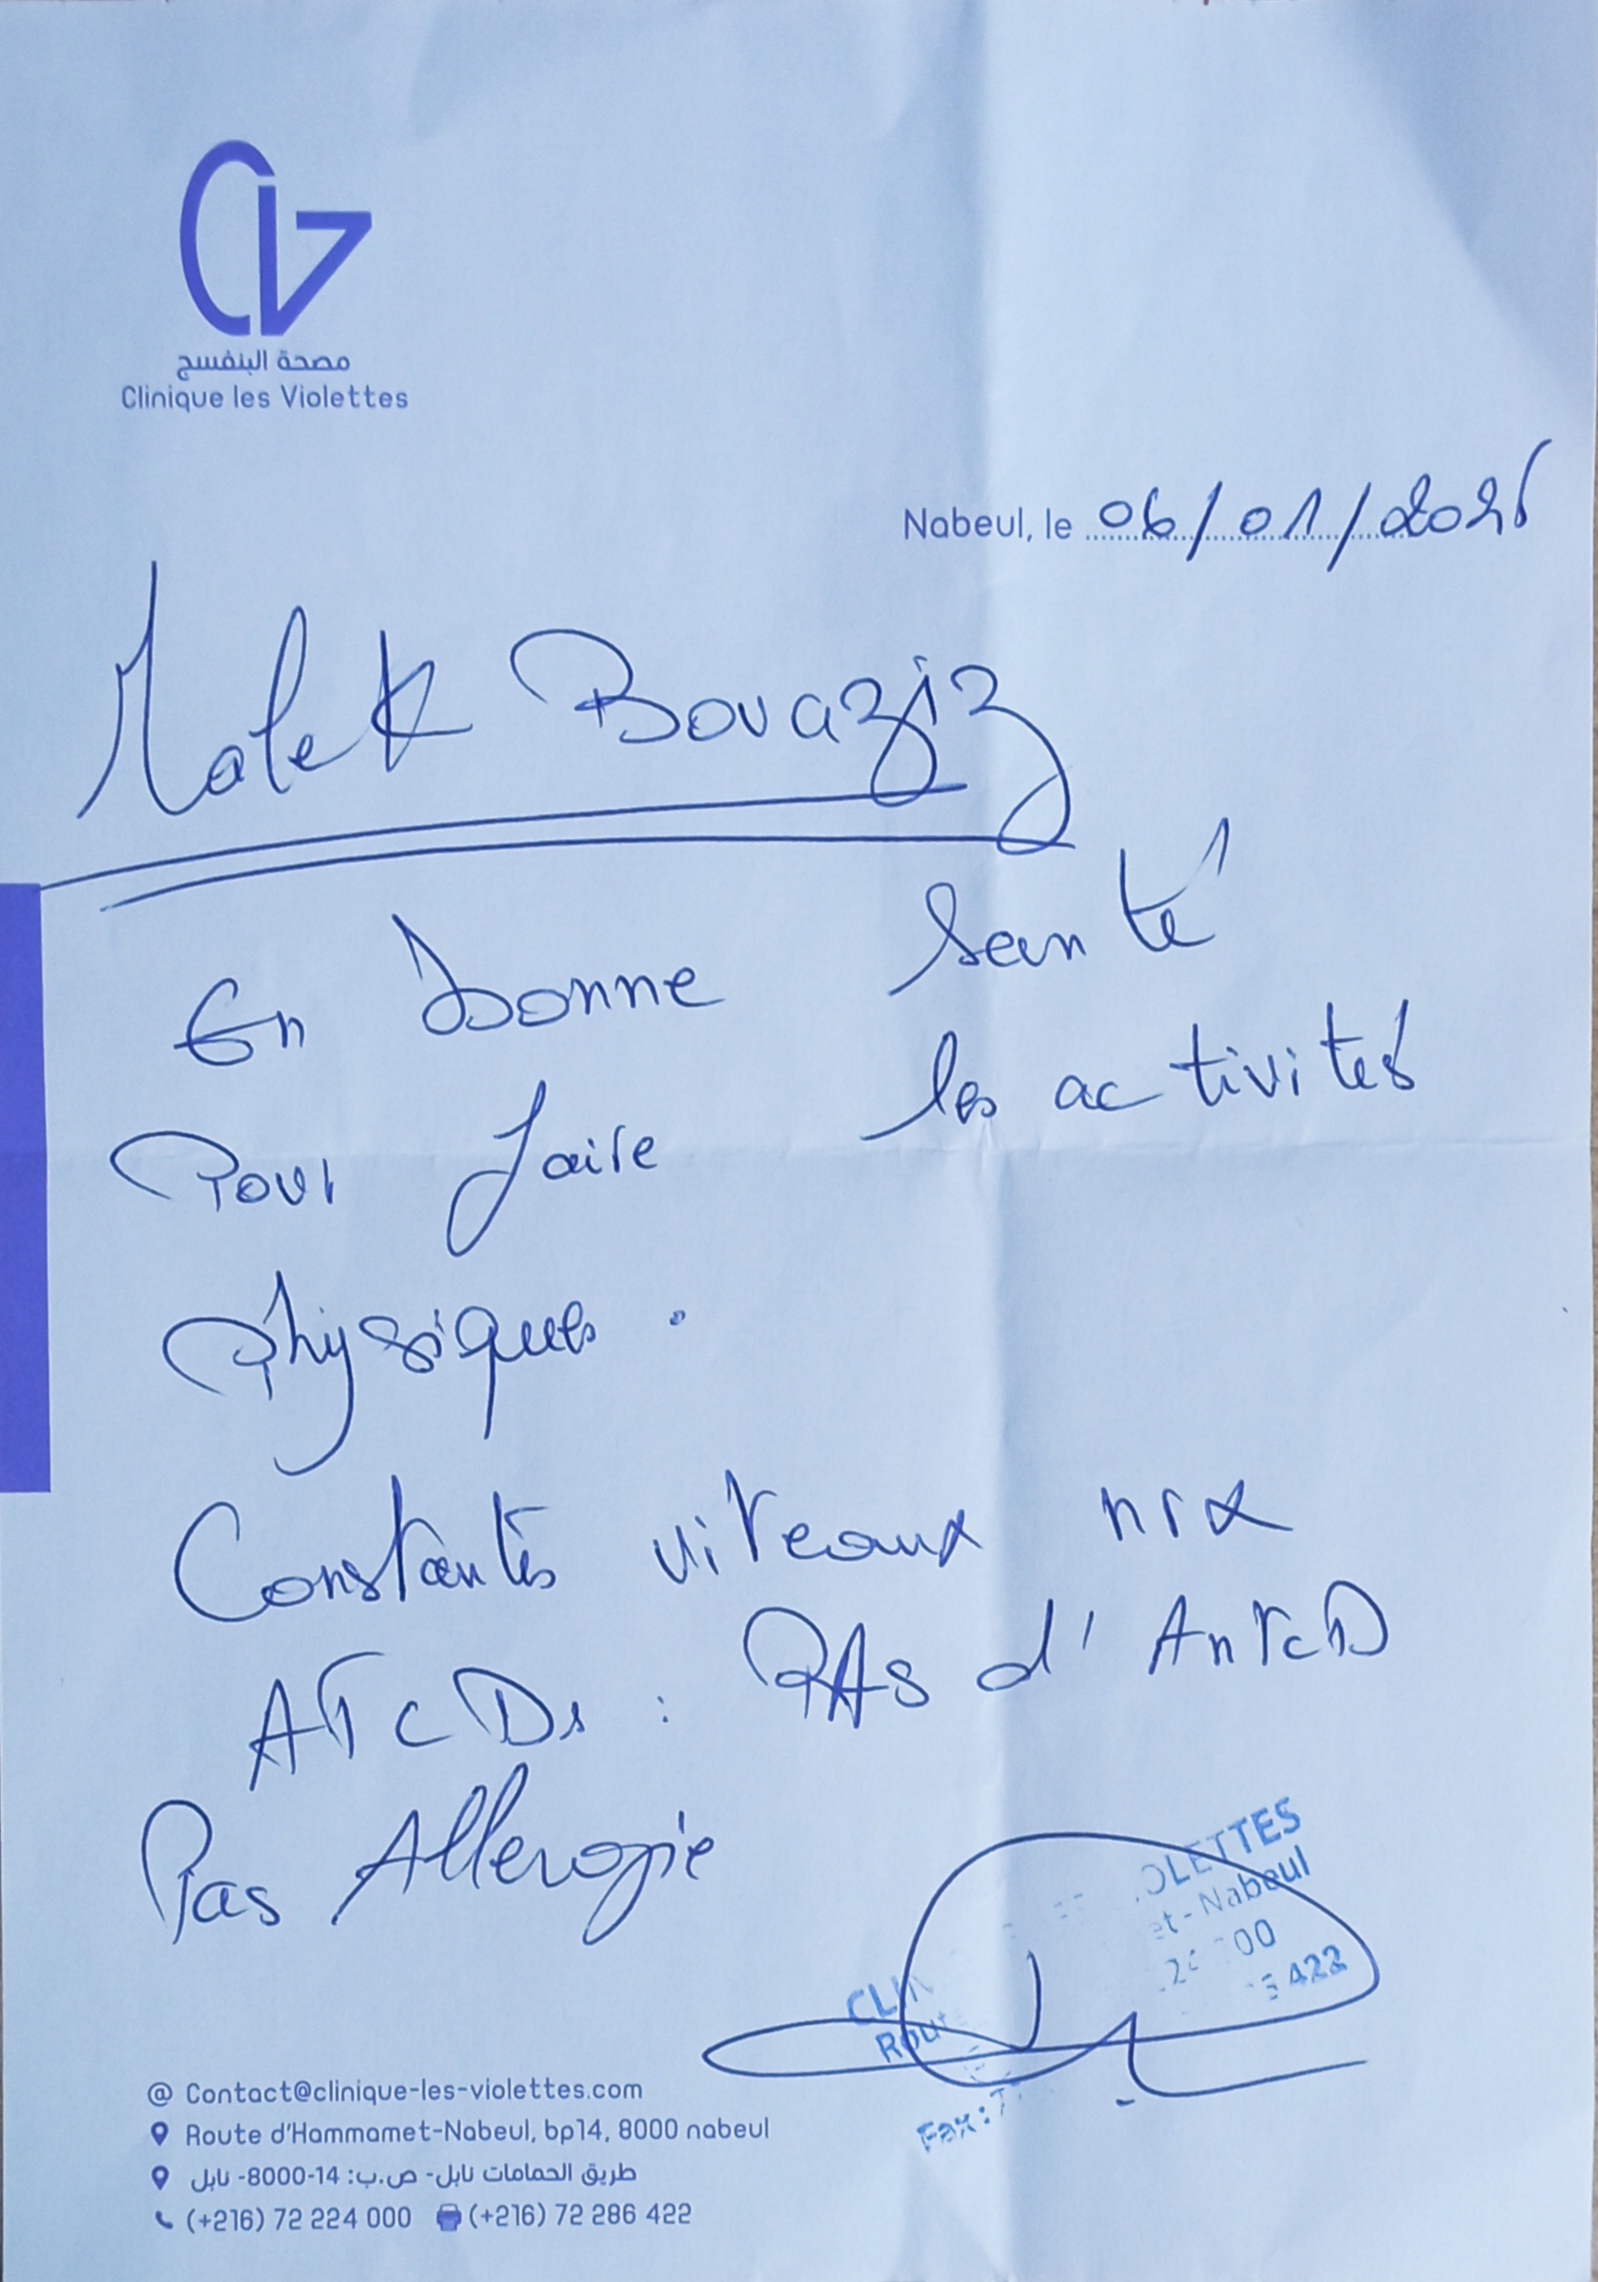 مصحة البنفسج
Clinique les Violettes
Nabeul, le 06/01/2026
Malek Bouaziz
En bonne santé
Pour faire les activités
Physiques.
Constantes viteaux nrx
ATCDs : PAS d'AnTcD
Pas Allergie
OLETTES
et-Nabeul
00
422
CLIN
Rout
Fax: 7
@ Contact@clinique-les-violettes.com
Route d'Hammamet-Nabeul, bp14, 8000 nabeul
طريق الحمامات نابل- ص.ب: 14-8000- نابل
(+216) 72 224 000 (+216) 72 286 422